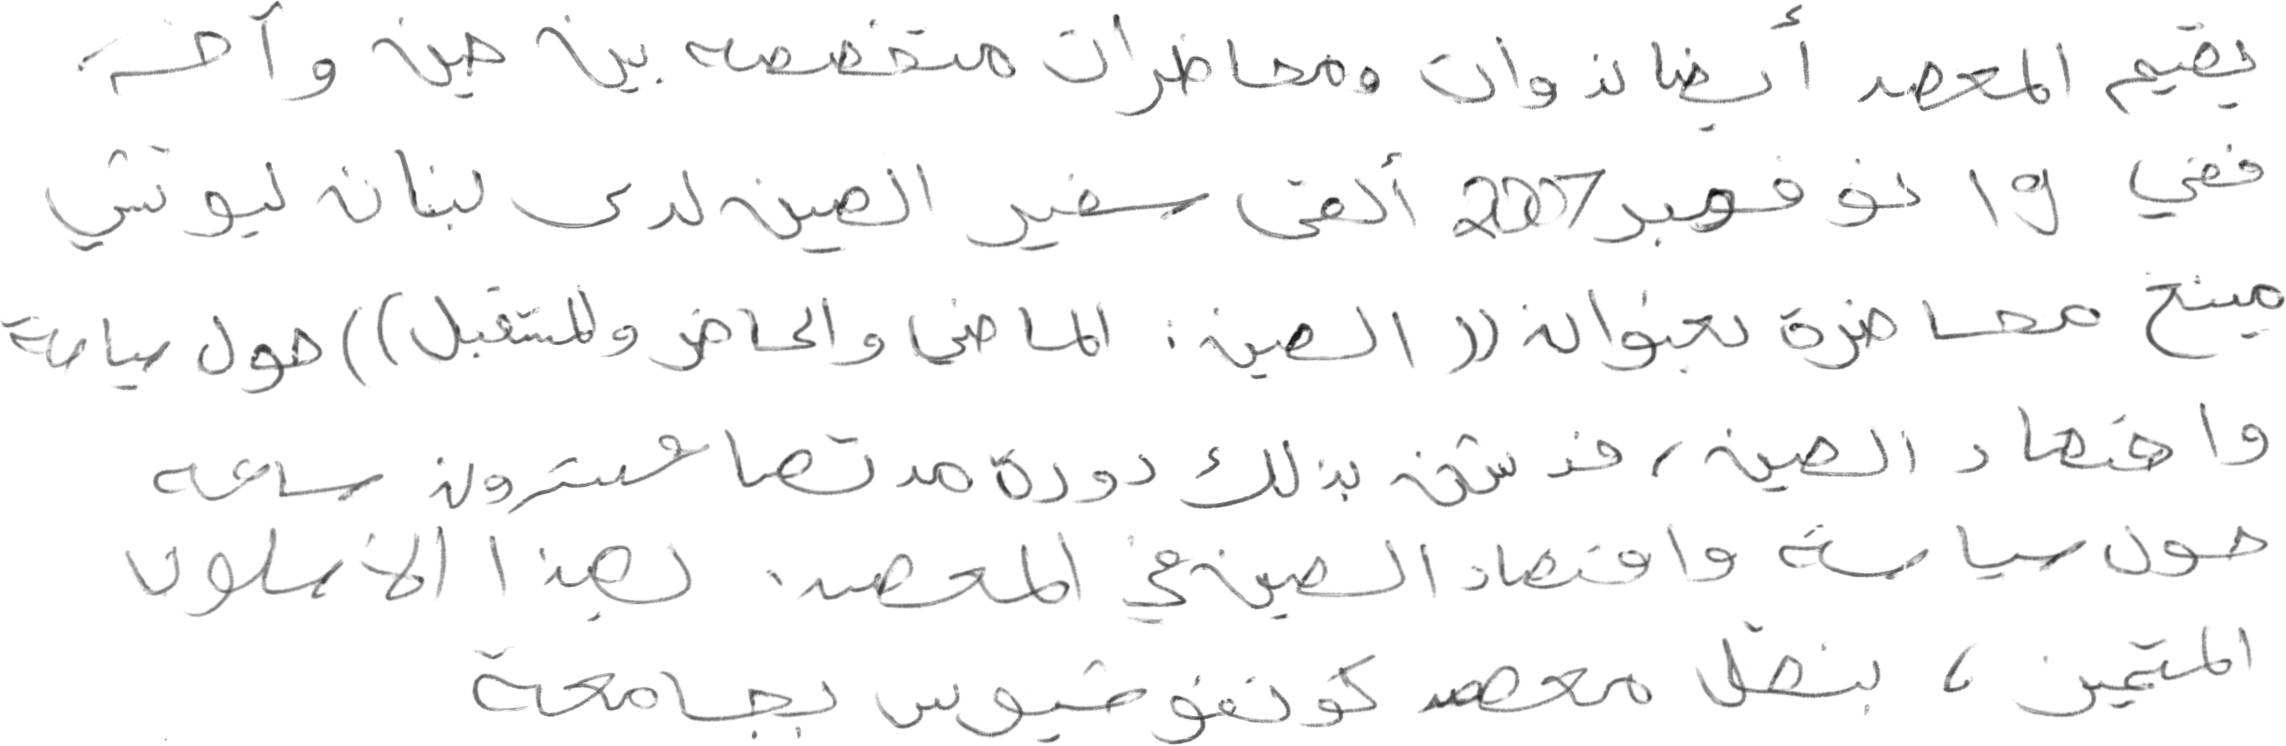 يقيم المعهد أيضا ندوات ومحاظرات متخصصه بين حين وآخر.
ففي 19 نوفمبر 2007 ألقى سفير الصين لدى لبنان ليو تشي
مينغ محاضرة بعنوان ((الصين: الماضي والحاضر والمستقبل)) حول سياسة
واقتصاد الصين، فدشن بذلك دورة مدتها عشرون ساعه
حول سياسة واقتصاد الصين في المعهد. بهذا الأسلوب
المتميز، بفضل معهد كونفوشيوس بجامعة